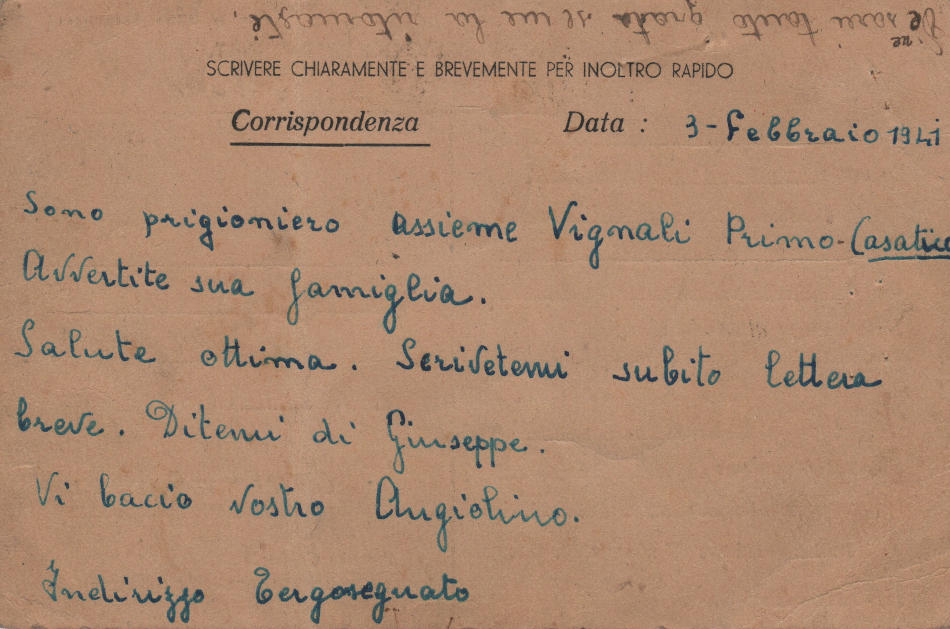 Ve ne sarei tanto grato se me la ritornaste.
SCRIVERE CHIARAMENTE E BREVEMENTE PER INOLTRO RAPIDO
Corrispondenza Data : 3-Febbraio 1941
Sono prigioniero assieme Vignali Primo-(Casatico
Avvertite sua famiglia.
Salute ottima. Scrivetemi subito lettera
breve. Ditemi di Giuseppe.
Vi bacio vostro Angiolino.
Indirizzo Tergosegnato